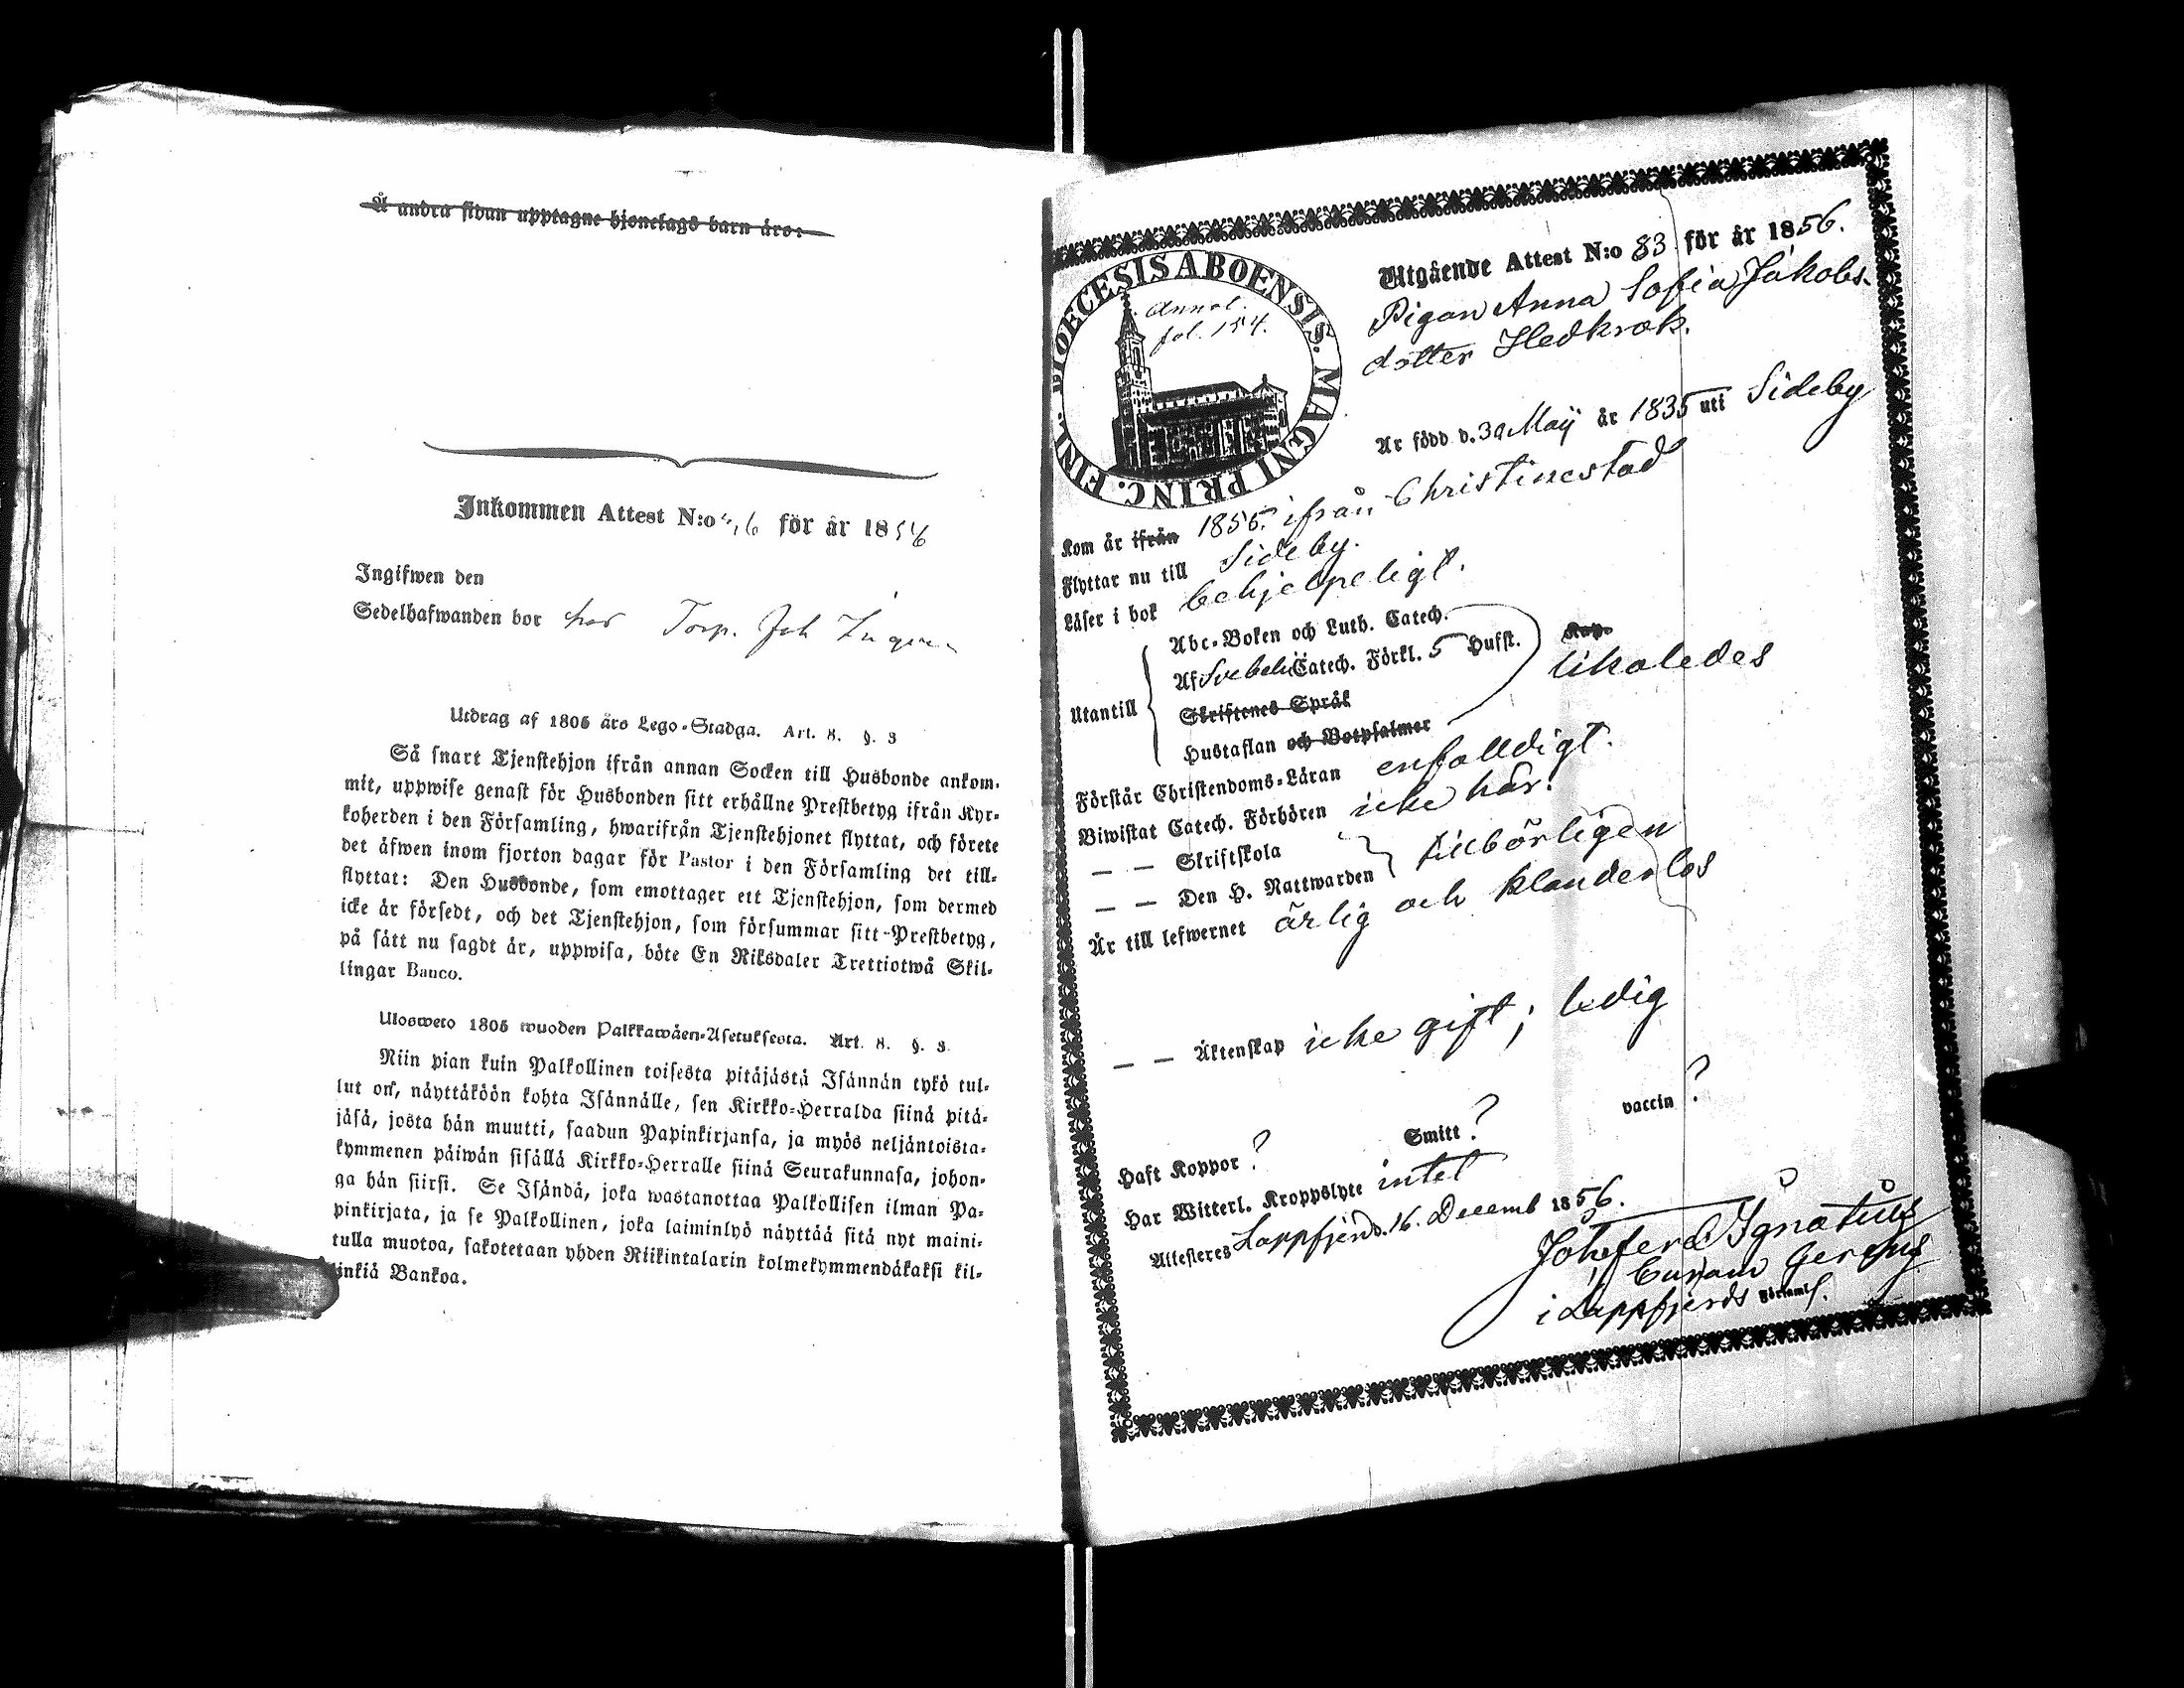 Å andra sidan upptagne hjonelags barn äro:
Inkommen Attest N:o 46 för år 1856
Ingifwen den
Sedelhafwanden bor hos Torp. Joh
Utdrag af 1805 års Lego-Stadga. Art. 8. §. 3
Så snart Tjenstehjon ifrån annan Socken till Husbonde ankom-
mit, uppwise genast för Husbonden sitt erhållne Prestbetyg ifrån Kyr-
koherden i den Församling, hwarifrån Tjenstehjonet flyttat, och förete
det äfwen inom fjorton dagar för Pastor i den Församling det till-
flyttat: Den Husbonde, som emottager ett Tjenstehjon, som dermed
icke är försedt, och det Tjenstehjon, som försummar sitt Prestbetyg,
på sätt nu sagdt är, uppwisa, böte En Riksdaler Trettiotwå Skil-
lingar Banco.
Ulosweto 1805 wuoden Palkkawäen-Asetuksesta. Art. 8. §. 3.
Niin pian kuin Palkollinen toisesta pitäjästä Isännän tykö tul-
lut on, näyttäköön kohta Isännälle, sen Kirkko-Herralda siinä pitä-
jäsä, josta hän muutti, saadun Papinkirjansa, ja myös neljäntoista-
kymmenen päiwän sisällä Kirkko-Herralle siinä Seurakunnasa, johon-
ga hän siirsi. Se Isändä, joka wastanottaa Palkollisen ilman Pa-
pinkirjata, ja se Palkollinen, joka laiminlyö näyttää sitä nyt maini-
tulla muotoa, sakotetaan yhden Riikintalarin kolmekymmendäkaksi kil-
linkiä Bankoa.
DIOECESIS ABOENSIS. MAGNI PRINC. FINL.
Annot.
fol. 154.
Utgående Attest N:o 83 för år 1856.
Pigan Anna Sofia Jakobs-
dotter Hedkrok.
Är född d. 30 Maij år 1835 uti Sideby
Kom år ifrån 1855. ifrån Christinestad
Flyttar nu till Sideby.
Läser i bok behjelpeligt.
Utantill
Abc-Boken och Luth. Catech.
Af Svebelii Catech. Förkl. 5 Hufst.
Skriftenes Språk
Hustaflan och Botpsalmer
likaledes
Förstår Christendoms-Läran enfalldigt.
Biwistat Catech. Förhören icke här.
— — Skriftskola
— — Den H. Nattwarden
tillbörligen
Är till lefwernet ärlig och klanderlös
— — Äktenskap icke gift; ledig
Haft Koppor ? Smitt ? vaccin ?
Har Witterl. Kroppslyte intet
Attesteres Lappfjerd d. 16. Decemb 1856.
Ignatius
Curam gerens
i Lappfjerds Församl.